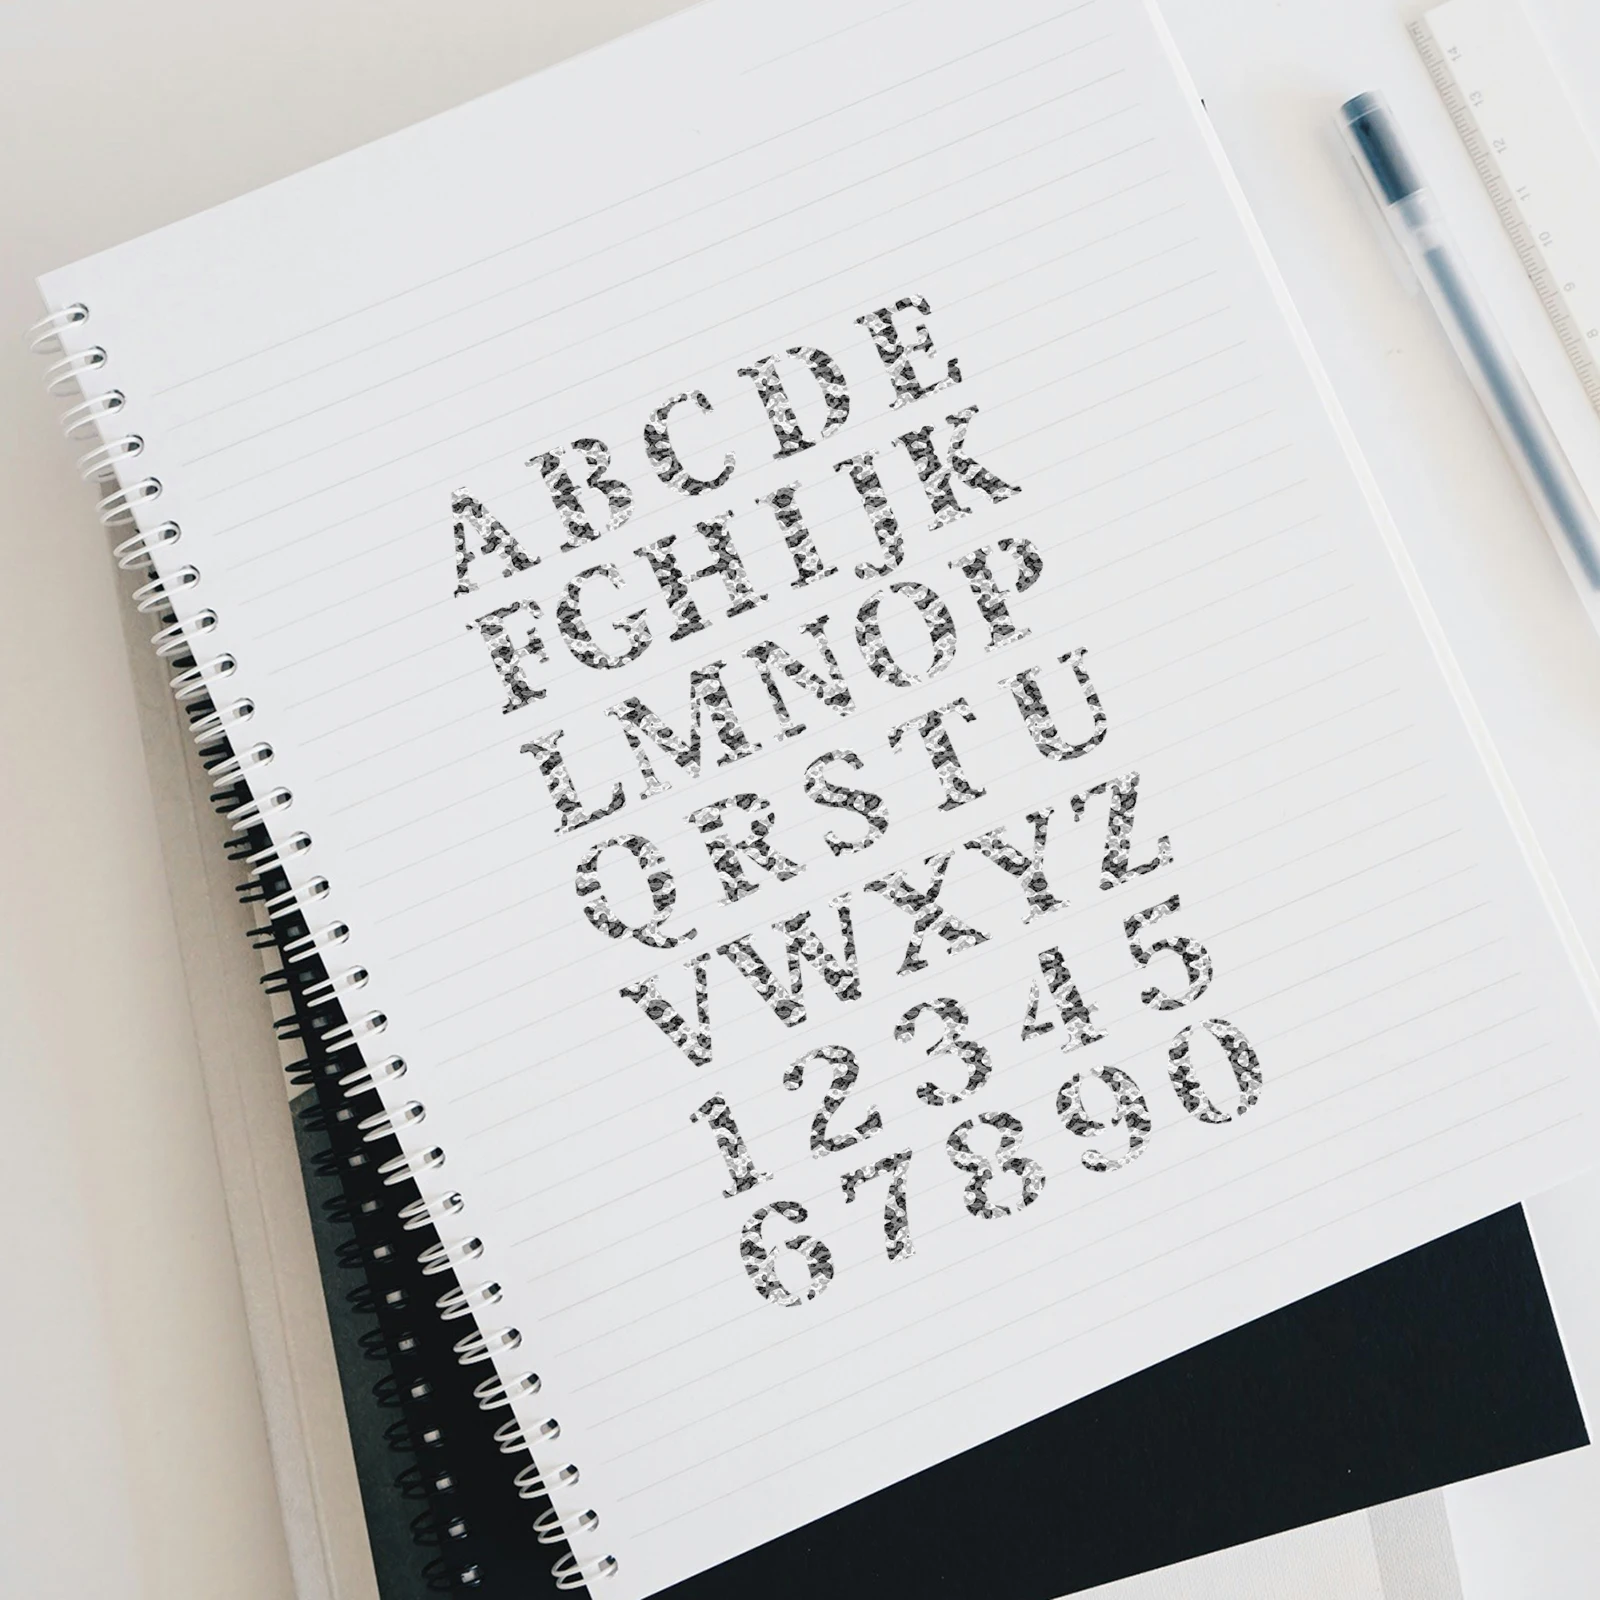 A B C D E
F G H I J K
L M N O P
Q R S T U
V W X Y Z
1 2 3 4 5
6 7 8 9 0
14
13
12
11
10
9
8